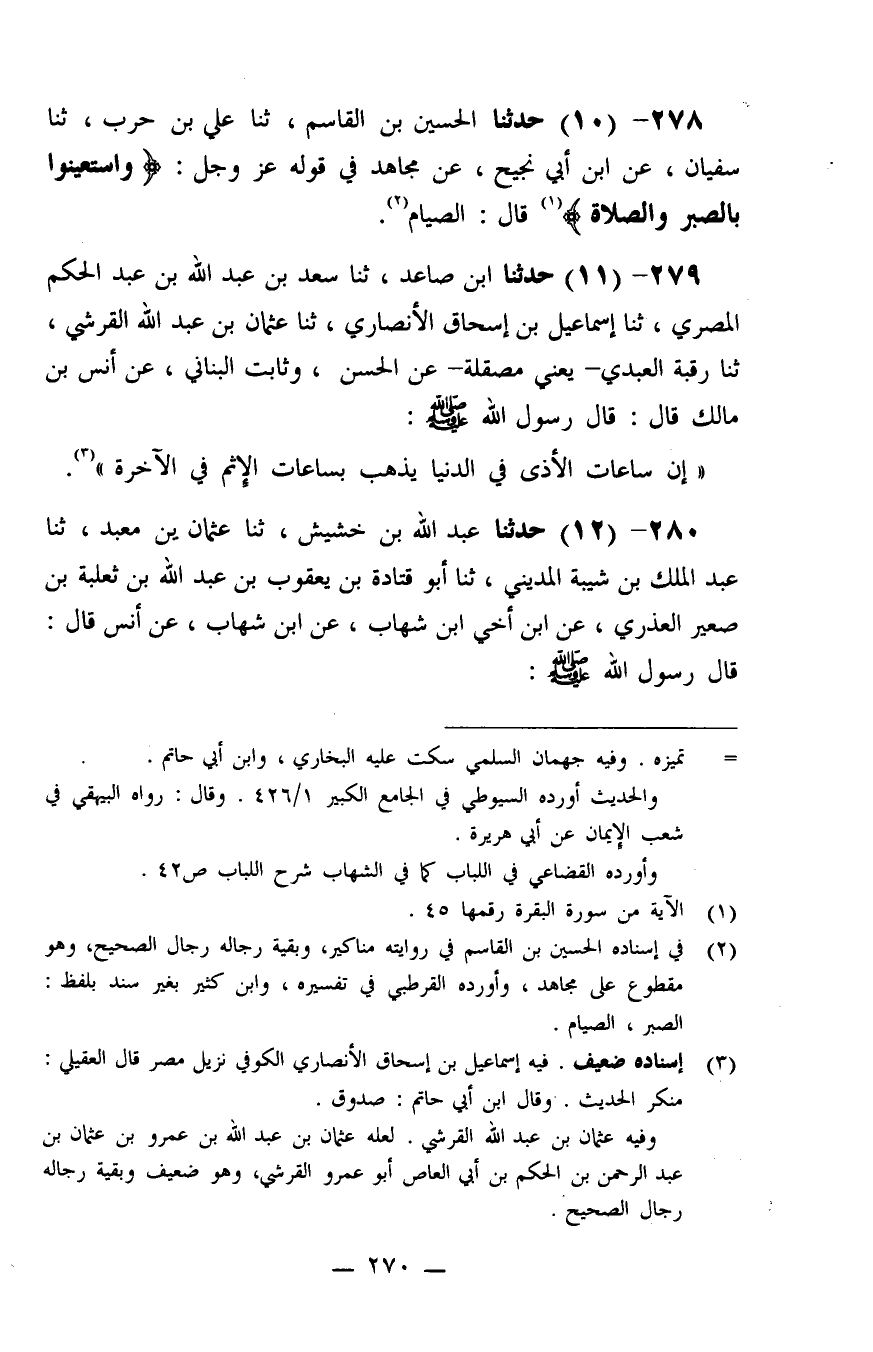 ٢٧٨- (١٠) حدثنا الحسين بن القاسم ، ثنا علي بن حرب ، ثنا
سفيان ، عن ابن أبي نجيح ، عن مجاهد في قوله عز وجل : ﴿ واستعينوا
بالصبر والصلاة ﴾(١) قال : الصيام(٢).
٢٧٩- (١١) حدثنا ابن صاعد ، ثنا سعد بن عبد الله بن عبد الحكم
المصري ، ثنا إسماعيل بن إسحاق الأنصاري ، ثنا عثمان بن عبد الله القرشي ،
ثنا رقبة العبدي- يعني مصقلة- عن الحسن ، وثابت البناني ، عن أنس بن
مالك قال : قال رسول الله ﷺ :
« إن ساعات الأذى في الدنيا يذهب بساعات الإثم في الآخرة »(٣).
٢٨٠- (١٢) حدثنا عبد الله بن خشيش ، ثنا عثمان ين معبد ، ثنا
عبد الملك بن شيبة المديني ، ثنا أبو قتادة بن يعقوب بن عبد الله بن ثعلبة بن
صعير العذري ، عن ابن أخي ابن شهاب ، عن ابن شهاب ، عن أنس قال :
قال رسول الله ﷺ :
= تميزه . وفيه جهمان السلمي سكت عليه البخاري ، وابن أبي حاتم .
والحديث أورده السيوطي في الجامع الكبير ٤٢٦/١ . وقال : رواه البيهقي في
شعب الإيمان عن أبي هريرة .
وأورده القضاعي في اللباب كما في الشهاب شرح اللباب ص٤٢ .
(١) الآية من سورة البقرة رقمها ٤٥ .
(٢) في إسناده الحسين بن القاسم في روايته مناكير، وبقية رجاله رجال الصحيح، وهو
مقطوع على مجاهد ، وأورده القرطبي في تفسيره ، وابن كثير بغير سند بلفظ :
الصبر ، الصيام .
(٣) إسناده ضعيف . فيه إسماعيل بن إسحاق الأنصاري الكوفي نزيل مصر قال العقيلي :
منكر الحديث . وقال ابن أبي حاتم : صدوق .
وفيه عثمان بن عبد الله القرشي . لعله عثمان بن عبد الله بن عمرو بن عثمان بن
عبد الرحمن بن الحكم بن أبي العاص أبو عمرو القرشي، وهو ضعيف وبقية رجاله
رجال الصحيح .
— ٢٧٠ —